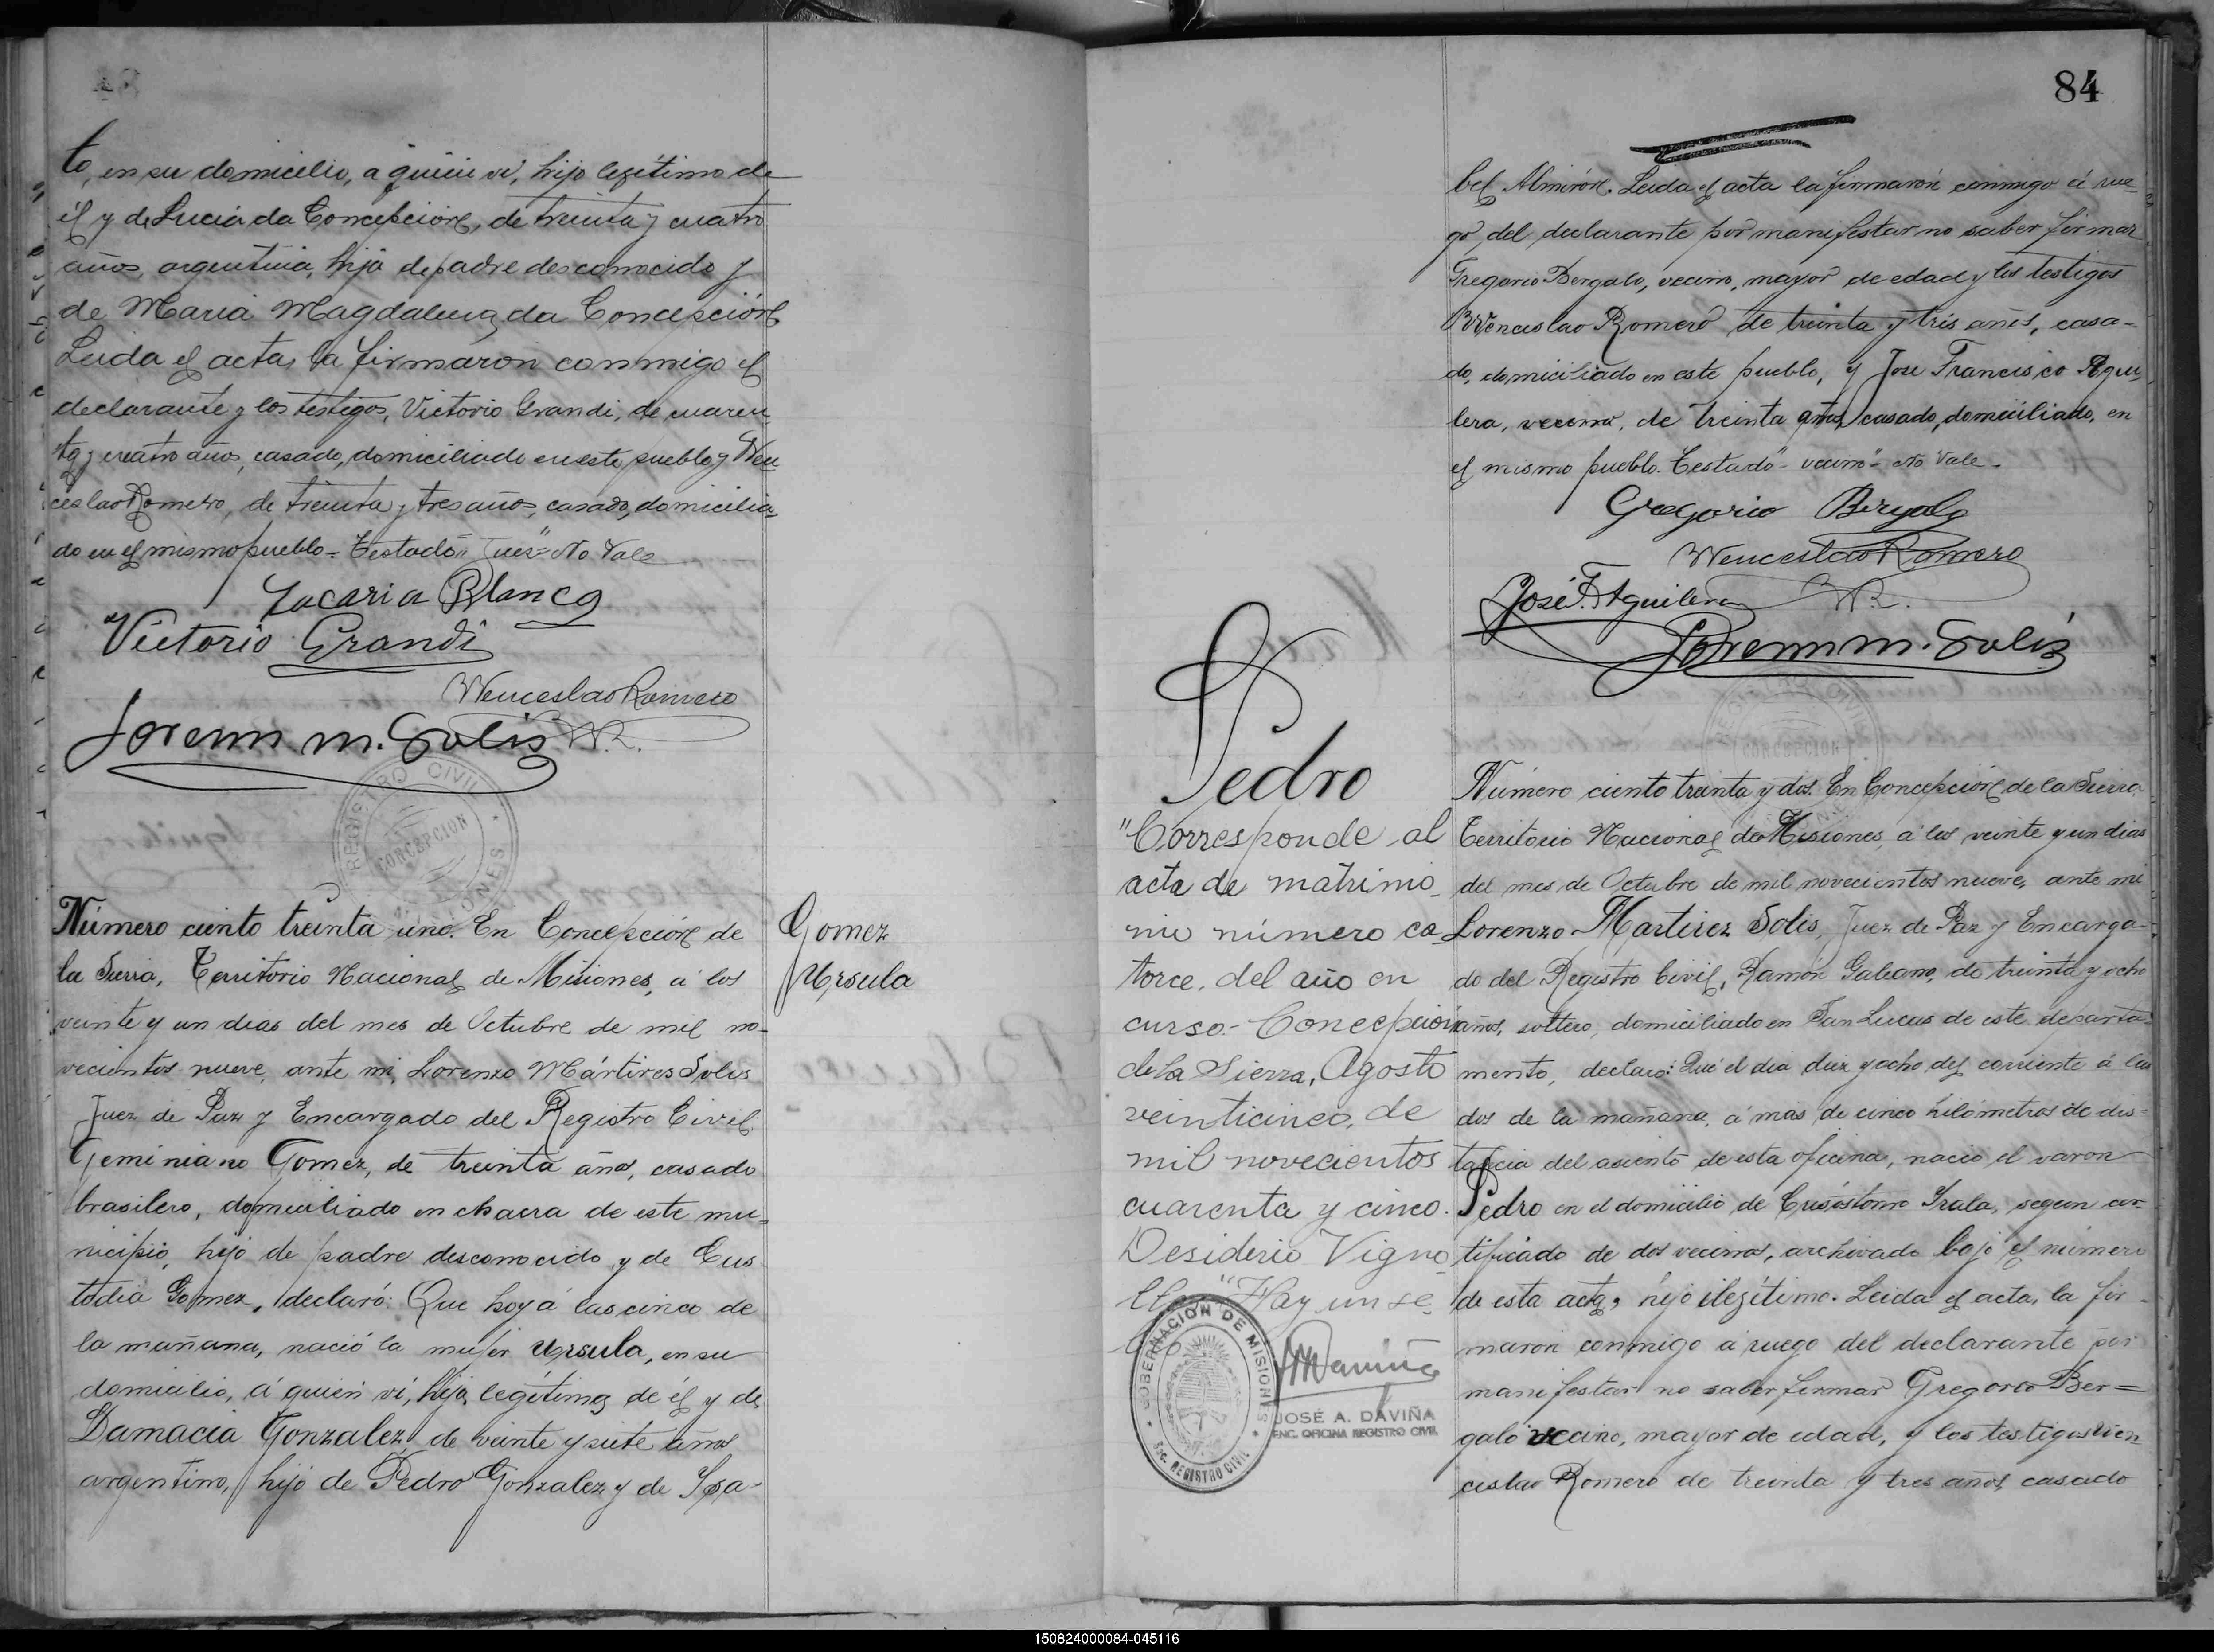 to, en su domicilio, a quien vi, hijo legítimo de
él y de Lucia da Concepción, de treinta y cuatro
años, argentina, hija de padre desconocido y
de Maria Magdalena da Concepción
Leida el acta, la firmaron conmigo el
declarante y los testigos, Victorio Grandi, de cuaren
ta y cuatro años, casado, domiciliado en este pueblo y Wen
ceslao Romero, de treinta y tres años, casado, domicilia
do en el mismo pueblo = Testado "Juez" No Vale
Zacaria Blanco
Victorio Grandi
Wenceslao Romero
W.R.
Lorenzo M. Solis
REGISTRO CIVIL
CONCEPCION
MISIONES
Número ciento treinta uno. En Concepción de
la Sierra, Territorio Nacional de Misiones, á los
veinte y un dias del mes de Octubre de mil no-
vecientos nueve, ante mi, Lorenzo Mártires Solis
Juez de Paz y Encargado del Registro Civil
Geminiano Gomez, de treinta años, casado
brasilero, domiciliado en chacra de este mu-
nicipio, hijo de padre desconocido y de Cus
todia Gomez, declaró: Que hoy á las cinco de
la mañana, nació la mujer Ursula, en su
domicilio, á quien vi, hija legítima de él y de
Damacia Gonzalez, de veinte y siete años
argentino, hijo de Pedro Gonzalez y de Isa-
Gomez
Ursula
84
bel Almirón. Leida el acta la firmarón conmigo á rue-
go del declarante por manifestar no saber firmar
Gregorio Bergalo, vecino, mayor de edad y los testigos
Wenceslao Romero de treinta y tres años, casa-
do, domiciliado en este pueblo, y Jose Francisco Agui
lera, vecino, de treinta años, casado, domiciliado, en
el mismo pueblo. Testado "vecino" No Vale.
Gregorio Bergalo
Wenceslao Romero
W.R.
José F. Aguilera
Lorenzo M. Solis
REGISTRO CIVIL
CONCEPCION
Pedro
"Corresponde al
acta de matrimo-
nio número ca-
torce, del año en
curso.- Concepción
de la Sierra, Agosto
veinticinco, de
mil novecientos
cuarenta y cinco.
Desiderio Vigno
lles" Hay un se-
llo
GOBERNACION DE MISIONES
Sec. REGISTRO CIVIL
JOSÉ A. DAVIÑA
ENC. OFICINA REGISTRO CIVIL
Número ciento treinta y dos. En Concepción de la Sierra
Territorio Nacional de Misiones, á los veinte y un dias
del mes de Octubre de mil novecientos nueve, ante mi
Lorenzo Martirez Solis, Juez de Paz y Encarga-
do del Registro Civil, Ramón Galeano, de treinta y ocho
años, soltero, domiciliado en San Lucas de este departa-
mento, declaró: Que el dia diez y ocho del corriente á las
dos de la mañana, á mas de cinco kilómetros de dis-
tancia del asiento de esta oficina, nació el varon
Pedro en el domicilio de Crisóstomo Irala, segun cer-
tificado de dos vecinos, archivado bajo el número
de esta acta, hijo ilegítimo. Leida el acta, la fir-
maron conmigo á ruego del declarante por
manifestar no saber firmar Gregorio Ber=
galo vecino, mayor de edad, y los testigos Wen
ceslao Romero de treinta y tres años, casado
150824000084-045116